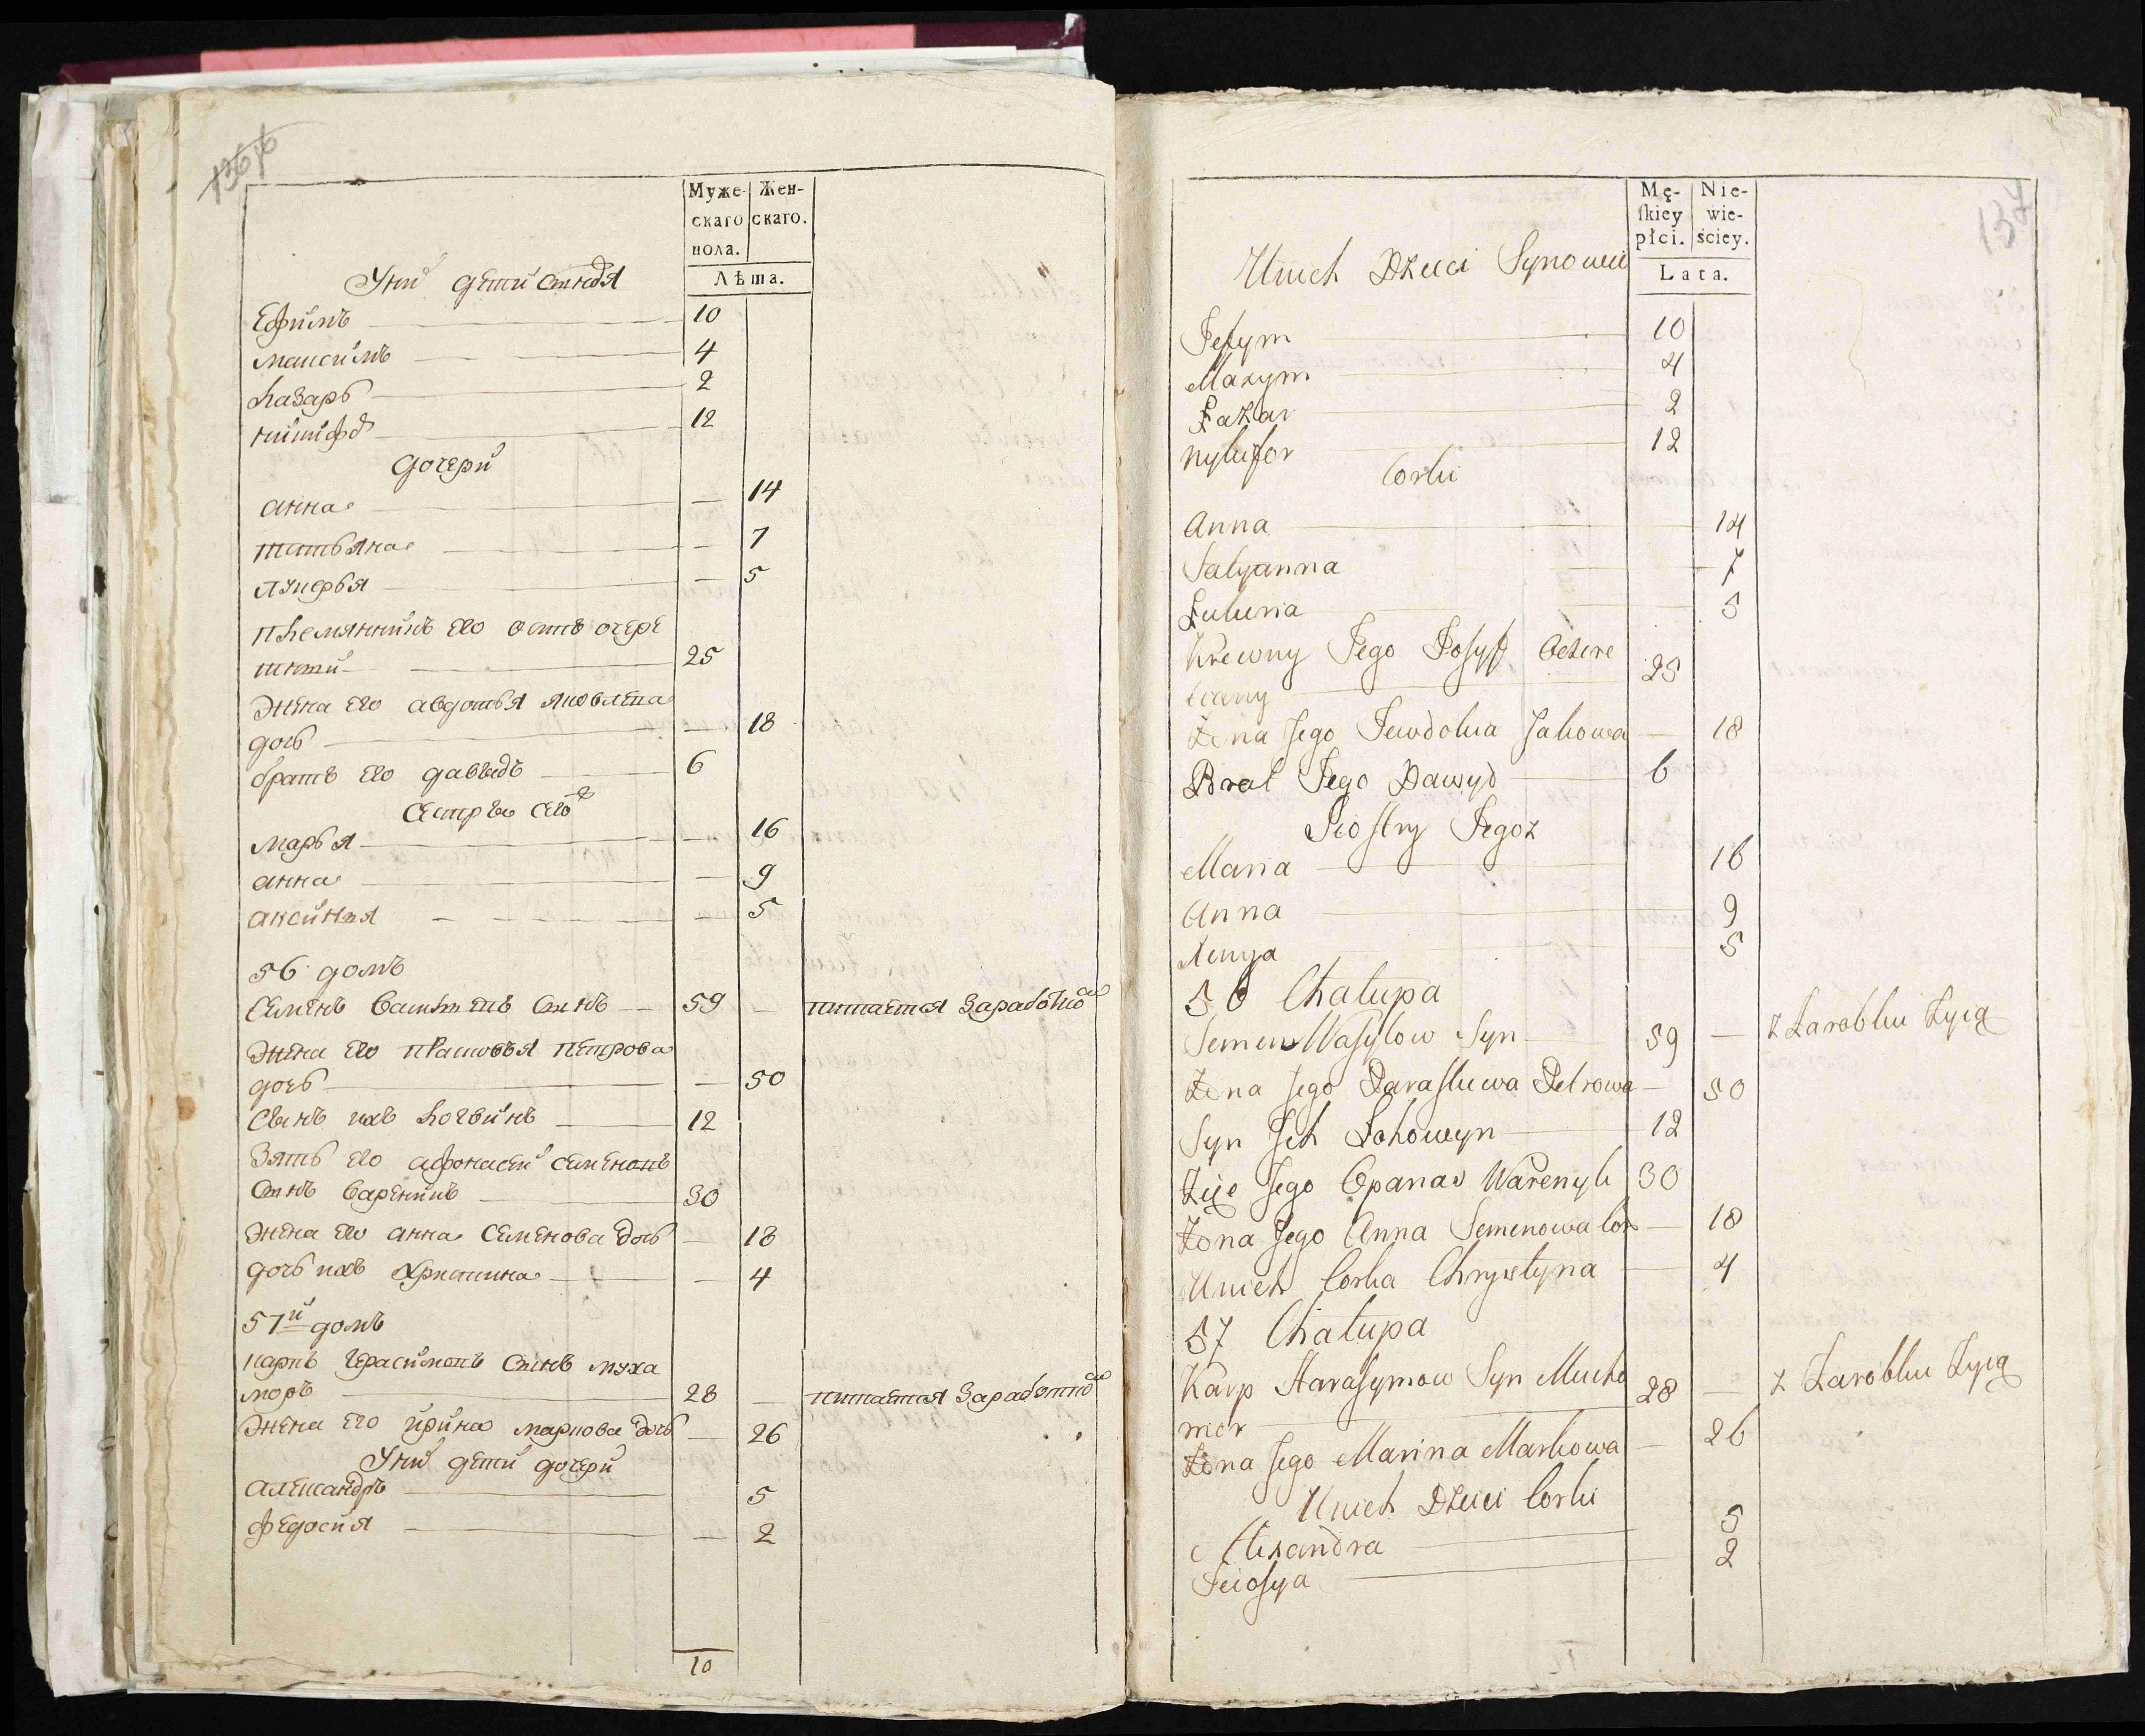 136 об
Муже- Жен-
скаго скаго.
пола.
Лѣта.
У них дети сыновья
Ефимъ 10
максимъ 4
лазарь 2
никифор 12
дочери
анна — 14
татьяна — 7
лукерья — 5
племянникъ его осипъ очере
тный 25
жена его авдотья яковлева
дочь — 18
братъ его давыдъ 6
сестры его ж
марья — 16
анна — 9
аксинья — 5
56 домъ
Семенъ васильевъ сынъ 59 — питается заработкою
жена его прасковья петрова
дочь — 50
сынъ ихъ логвинъ 12
зять его афонасей семеновъ
сынъ вареникъ 30
жена его анна семенова дочь — 18
дочь ихъ христина — 4
57й домъ
карпъ герасимовъ сынъ муха
моръ 28 — питается заработкою
жена его ирина маркова дочь — 26
У них дети дочери
александръ 5
федосия — 2
10
137
Mę- Nie-
skiey wie-
płci. ściey.
Lata.
U nich Dzieci Synowie
Jefym 10
Maxym 4
Łazar 2
Nykifor 12
Corki
Anna 14
Tatyanna 7
Łukeria 5
Krewny Jego Josyf Oczere
tiany 25
Żona Jego Jewdokia Jakowa — 18
Brat Jego Dawyd 6
Siostry Jegoż
Maria 16
Anna 9
Xenya 5
56 Chałupa
Semen Wasylow Syn 59 — z Zarobku Żyią
Żona Jego Paraskewa Petrowa — 50
Syn Jch Lohowyn 12
Zięc Jego Opanas Warenyk 30
Żona Jego Anna Semenowa Cor — 18
U nich Corka Chrystyna — 4
57 Chałupa
Karp Harasymow Syn Mucho
mor 28 — z Zarobku Żyią
Żona Jego Marina Markowa — 26
U nich Dzieci Corki
Alexandra 5
Feiosya 2